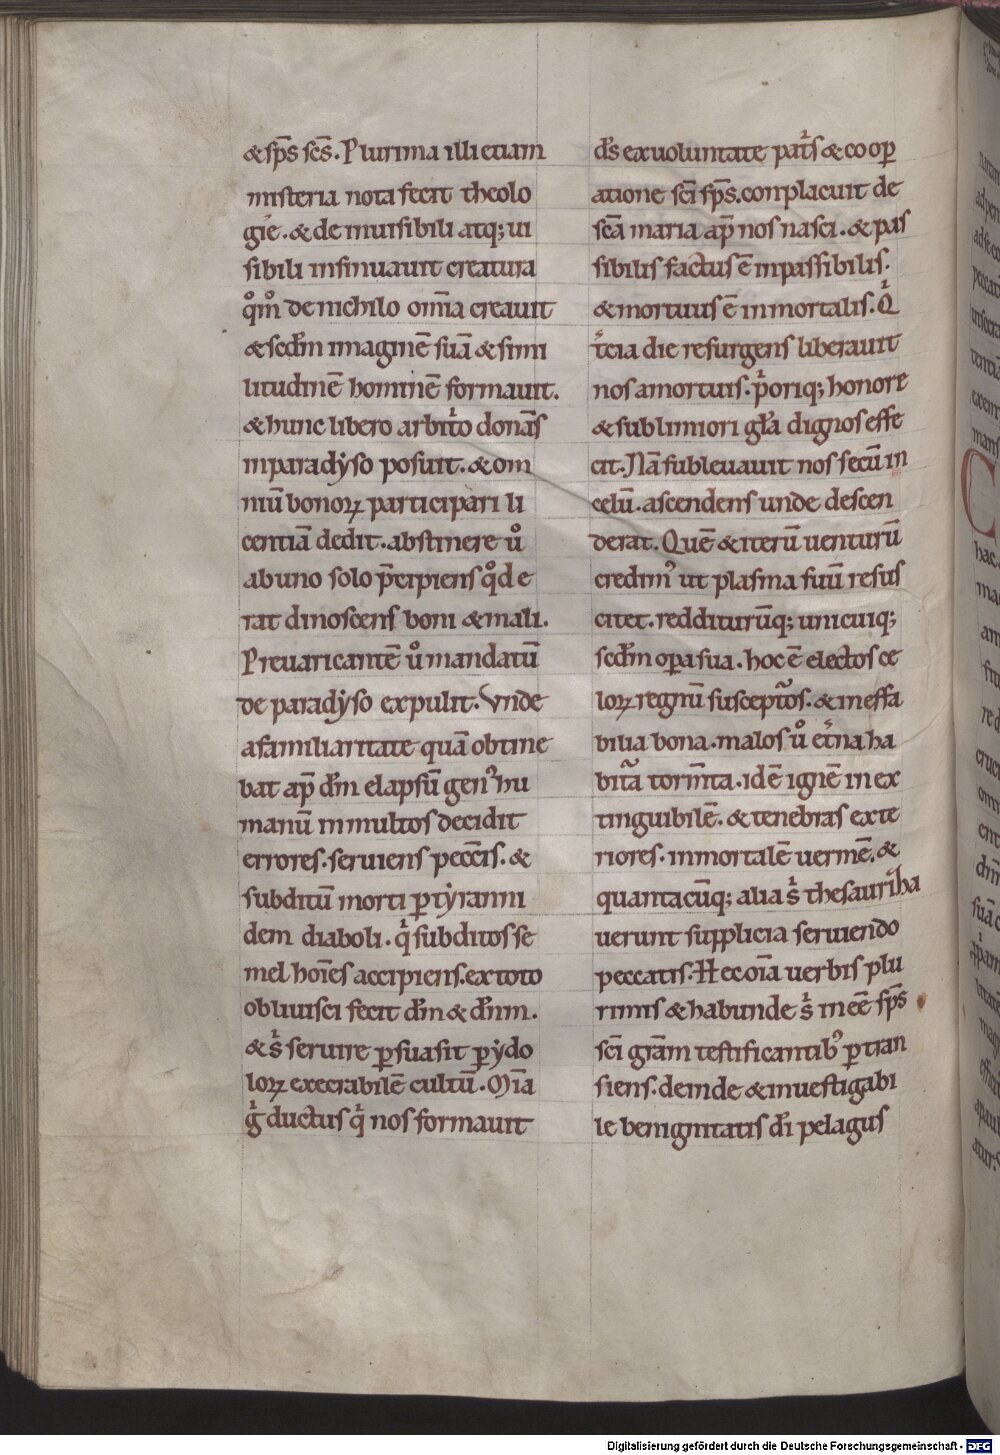 &sp̄s sc̄s. Plurima illi etiam
misteria nota fecit theolo
gie. & de inuisibili atq; ui
sibili insinuauit creatura
qͦmͦ de nichilo om̄ia creauit
& scd̄m imaginē suā & simi
litudinē hominē formauit.
& hunc libero arbitͥo donās
in paradyso posuit. & om
niū bonoꝝ participari li
centiā dedit. abstinere uͦ
ab uno solo p̄cipiens qͦd e
rat dinoscens boni & mali.
Preuaricantē uͦ mandatū
de paradyso expulit. Vnde
a familiaritate quā obtine
bat ap̄ dm̄ elapsū genꝰ hu
manū in multos decidit
errores. seruiens pecc̄is. &
subditū morti ꝑ tyranni
dem diaboli. qͥ subditos se
mel hoīes accipiens. ex toto
obliuisci fecit dm̄ & dn̄m.
& sͥ seruire ꝑsuasit ꝑ ydo
loꝝ execrabilē cultū. Mīa
gͥ ductus qͥ nos formauit
ds̄ ex uoluntate pat̄s & cooꝑ
atione sc̄i sp̄s. conplacuit de
sc̄a maria ap̄ nos nasci. & pas
sibilis factus ē inpassibilis.
& mortuus ē inmortalis. Qͥ
t̄cia die resurgens liberauit
nos a mortuis. pͥoriq; honore
& sublimiori gl̄a dignos effe
cit. Nā subleuauit nos secū in
celū. ascendens unde descen
derat. Quē & iterū uenturū
credimꝰ ut plasma suū resus
citet. redditurūq; unicuiq;
scd̄m oꝑa sua. hoc ē electos ce
loꝝ regnū susceptos. & ineffa
bilia bona. malos uͦ et̄na ha
bita torm̄ta. idē ignē inex
tinguibilē. & tenebras exte
riores. inmortalē uermē. &
quantacūq; alia sͥ thesauriha
uerunt supplicia seruiendo
peccatis. Hec oīa uerbis plu
rimis & habunde sͥ inee sp̄s
sc̄i gr̄am testificantibꝰ ꝑtran
siens. deinde & inuestigabi
le benignitatis dī pelagus
Digitalisierung gefördert durch die Deutsche Forschungsgemeinschaft - DFG